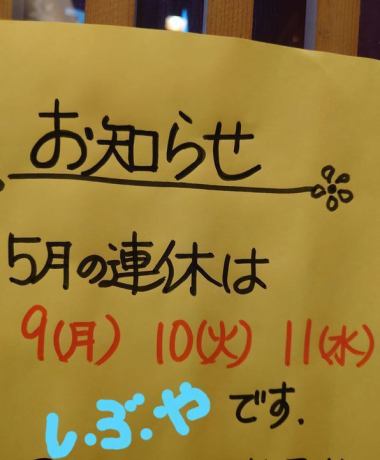 お知らせ
5月の連休は
9(月) 10(火) 11(水)
し.ぶ.や です.